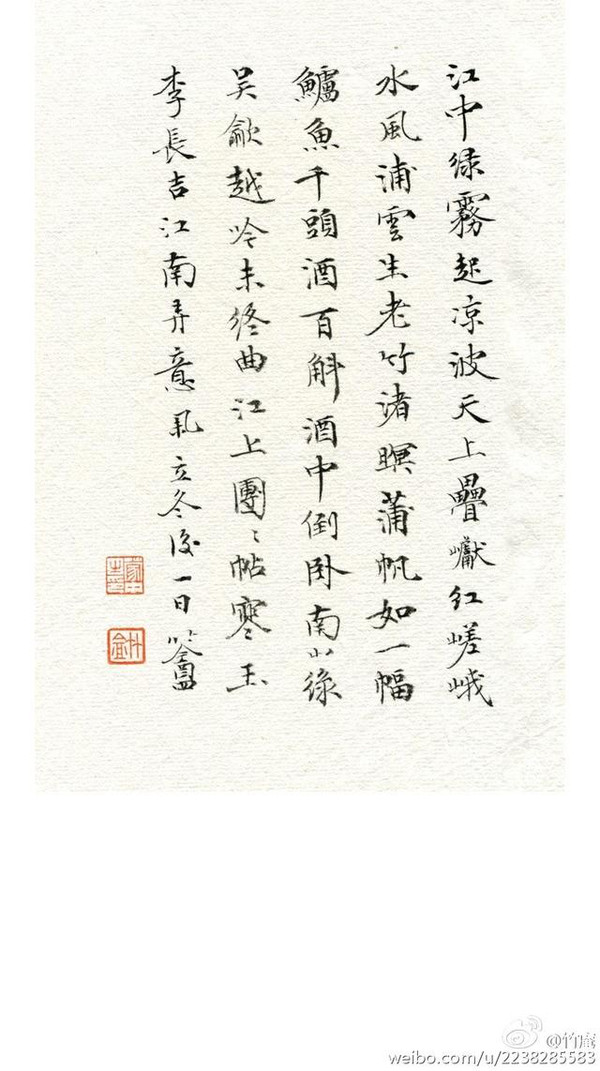 江中绿霧起凉波天上疊巘红嵯峨
水風浦雲生老竹渚暝蒲帆如一幅
鱸魚千頭酒百斛酒中倒卧南山绿
吴歈越吟未终曲江上團〻帖寒玉
李長吉江南弄意氣立冬後一日竹盦
@竹庵
weibo.com/u/2238285583